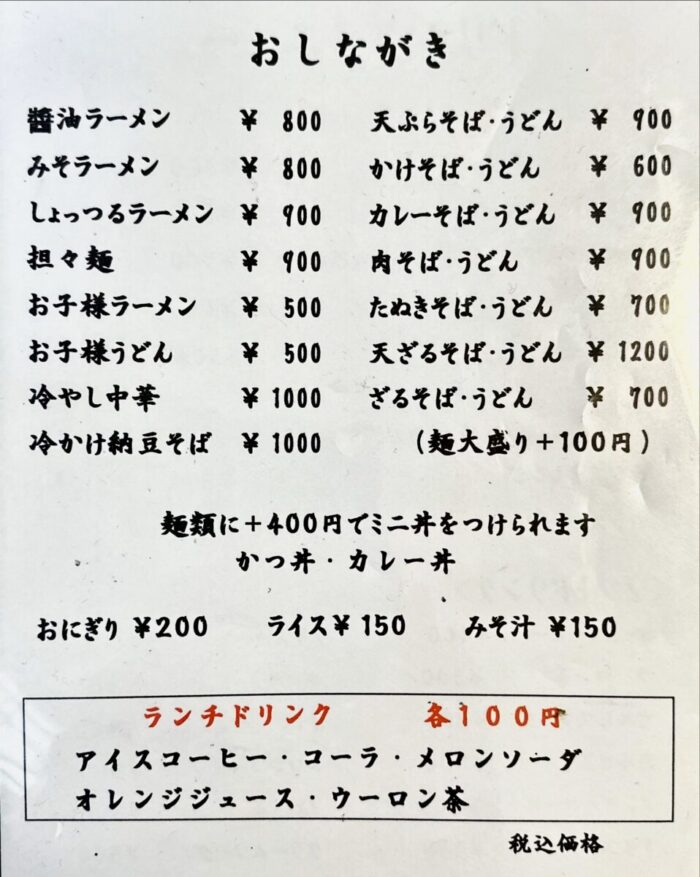 おしながき
醬油ラーメン ¥ 800 天ぷらそば・うどん ¥ 900
みそラーメン ¥ 800 かけそば・うどん ¥ 600
しょっつるラーメン ¥ 900 カレーそば・うどん ¥ 900
担々麺 ¥ 900 肉そば・うどん ¥ 900
お子様ラーメン ¥ 500 たぬきそば・うどん ¥ 700
お子様うどん ¥ 500 天ざるそば・うどん ¥ 1200
冷やし中華 ¥ 1000 ざるそば・うどん ¥ 700
冷かけ納豆そば ¥ 1000 (麺大盛り+100円)
麺類に+400円でミニ丼をつけられます
かつ丼・カレー丼
おにぎり ¥200 ライス¥ 150 みそ汁 ¥150
ランチドリンク 各100円
アイスコーヒー・コーラ・メロンソーダ
オレンジジュース・ウーロン茶
税込価格